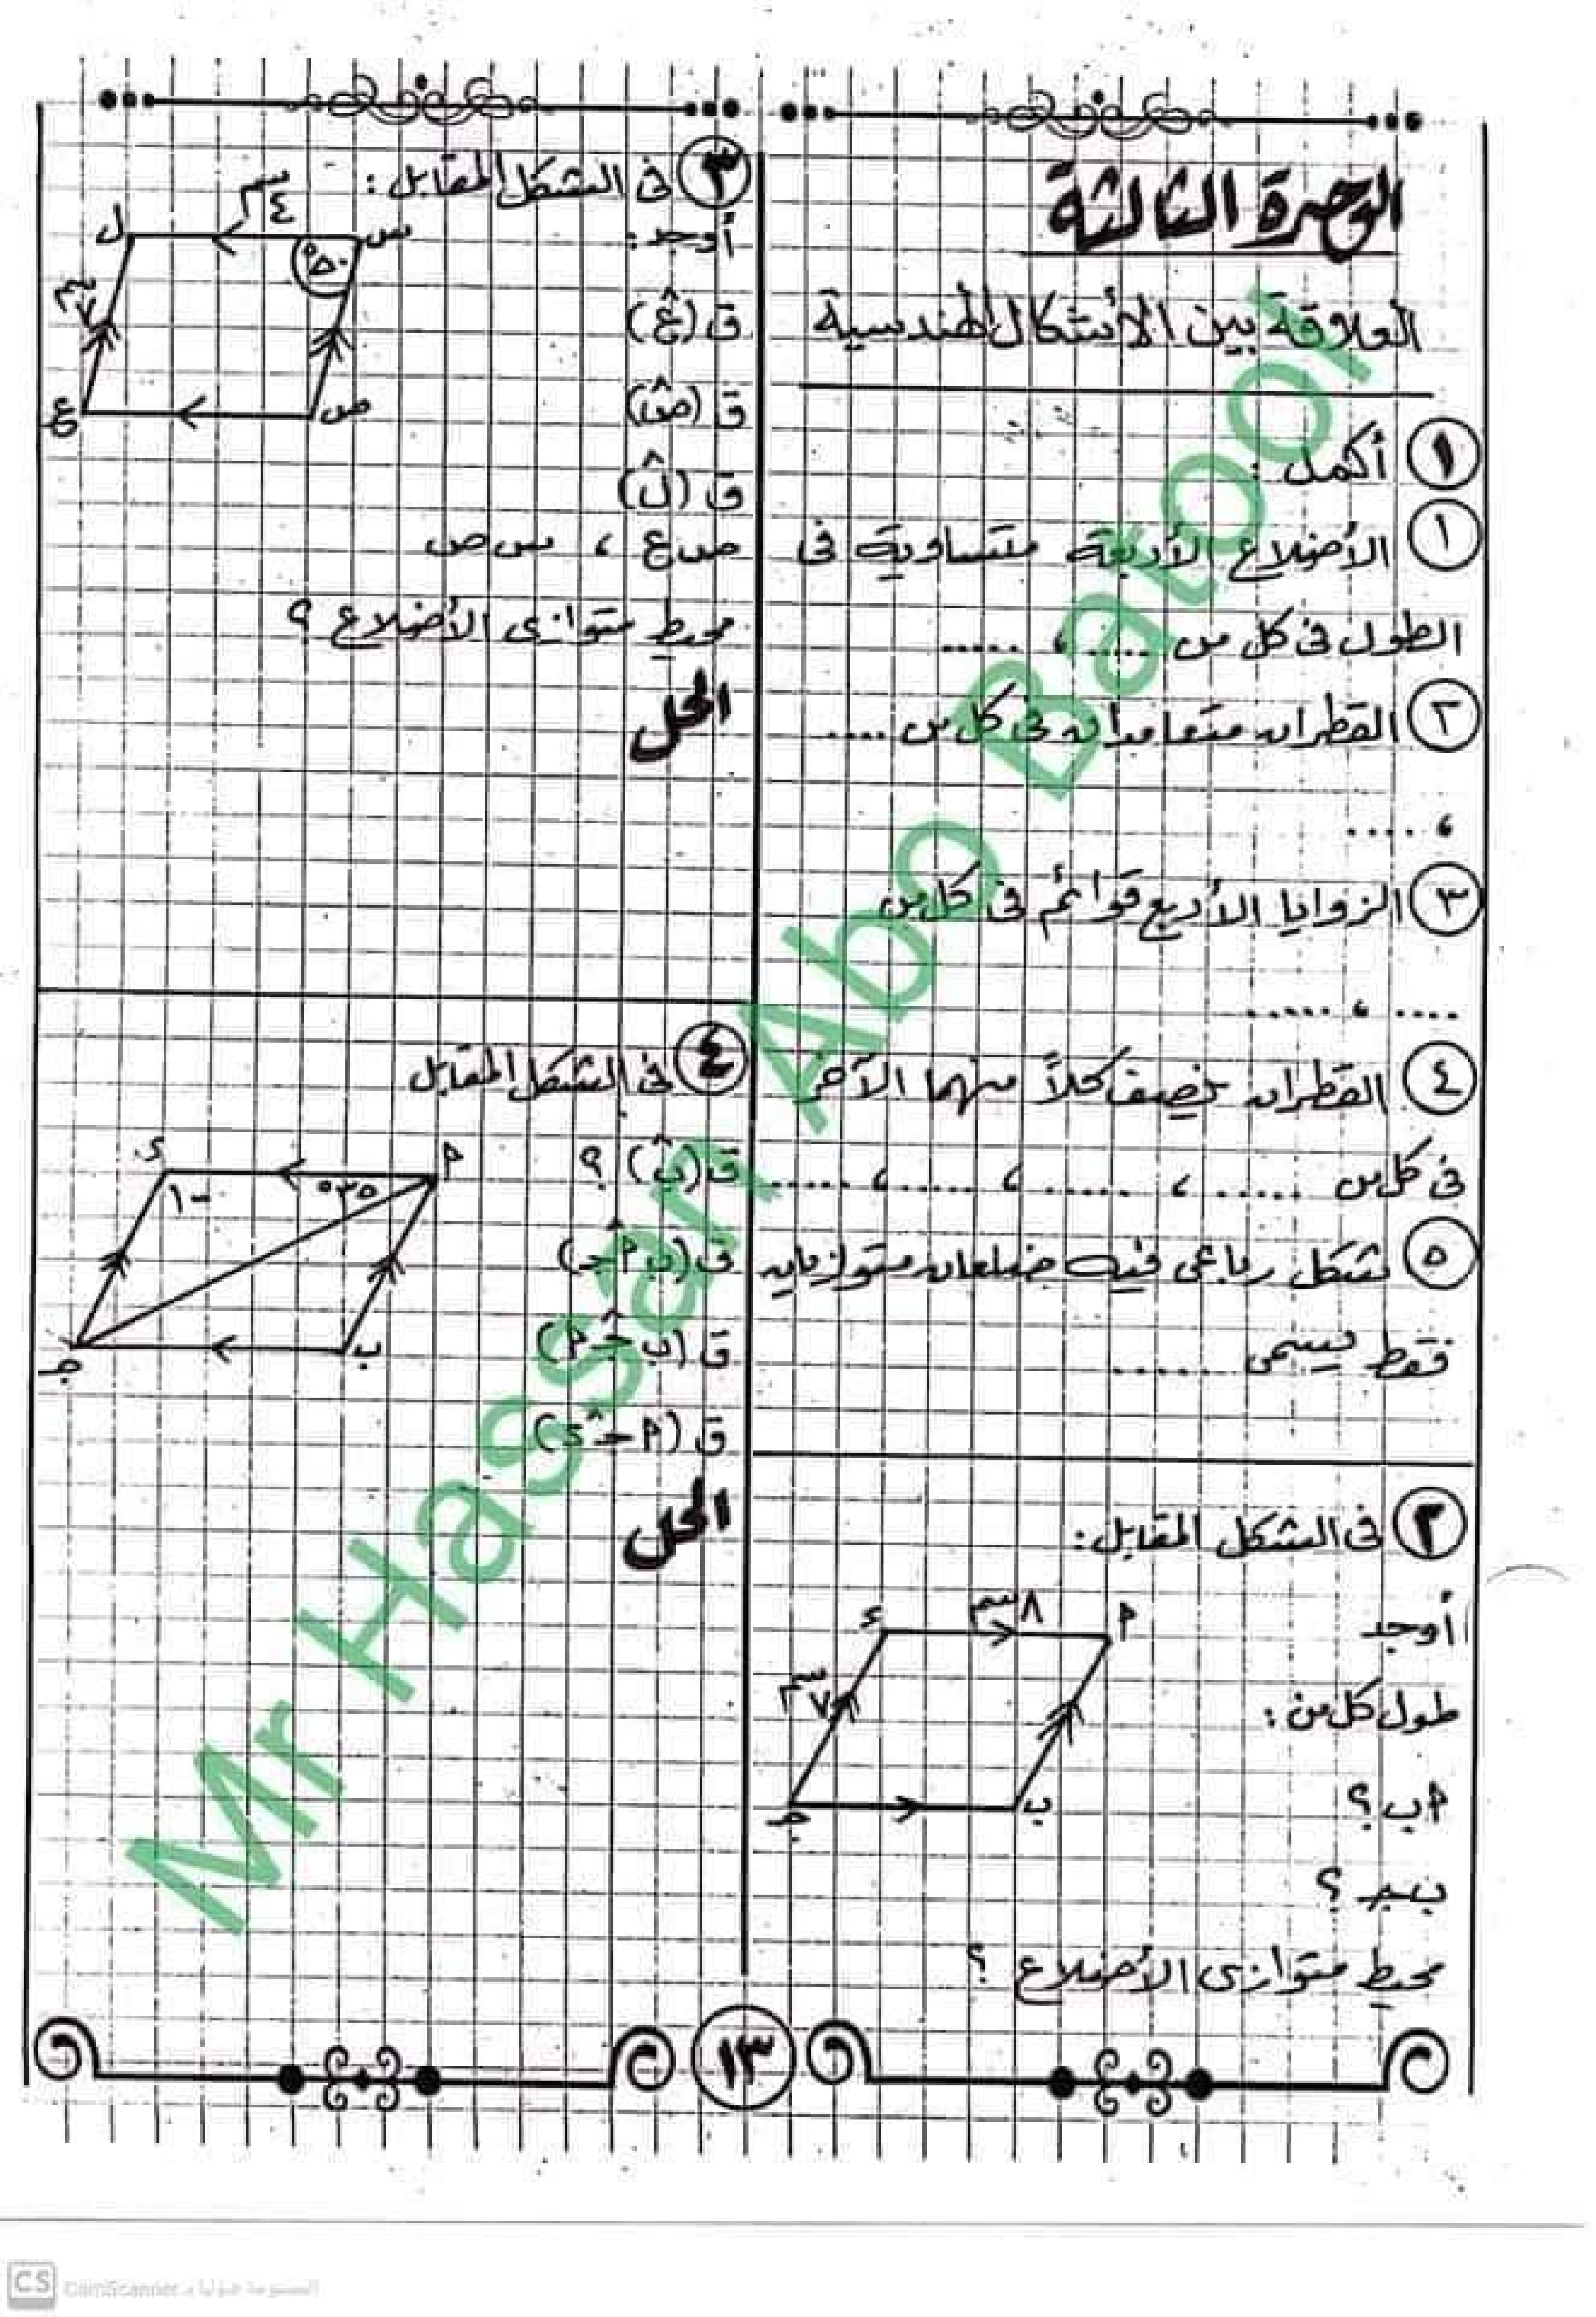 الوحدة الثالثة
العلاقة بين الأشكال الهندسية
١ أكمل :
١ الأضلاع الأربعة متساوية فى
الطول فى كل من ...... ، ......
٢ القطران متعامدان فى كل من ....
، .....
٣ الزوايا الأربع قوائم فى كل من
.... ، ......
٤ القطران ينصف كلاً منهما الآخر
فى كل من ...... ، ...... ، ...... ، ......
٥ شكل رباعى فيه ضلعان متوازيان
فقط يسمى ......
٢ فى الشكل المقابل :
أوجد
طول كل من :
٨ سم
٧ سم
أ
ب
جـ
ء
أ ب ؟
ب جـ ؟
محيط متوازى الأضلاع ؟
٣ فى الشكل المقابل :
أوجد :
ق (ع̂)
ق (ص̂)
ق (ل̂)
ص ع ، س ص
محيط متوازى الأضلاع ؟
الحل
ل
س
ص
ع
٤ سم
٥٠°
٤ فى الشكل المقابل
ق (ب̂) ؟
ق (ب أ̂ جـ)
ق (ب جـ̂ أ)
ق (أ جـ̂ ء)
الحل
ء
أ
ب
جـ
٣٥°
١٣
Mr Hassan Abo Batool
CS CamScanner